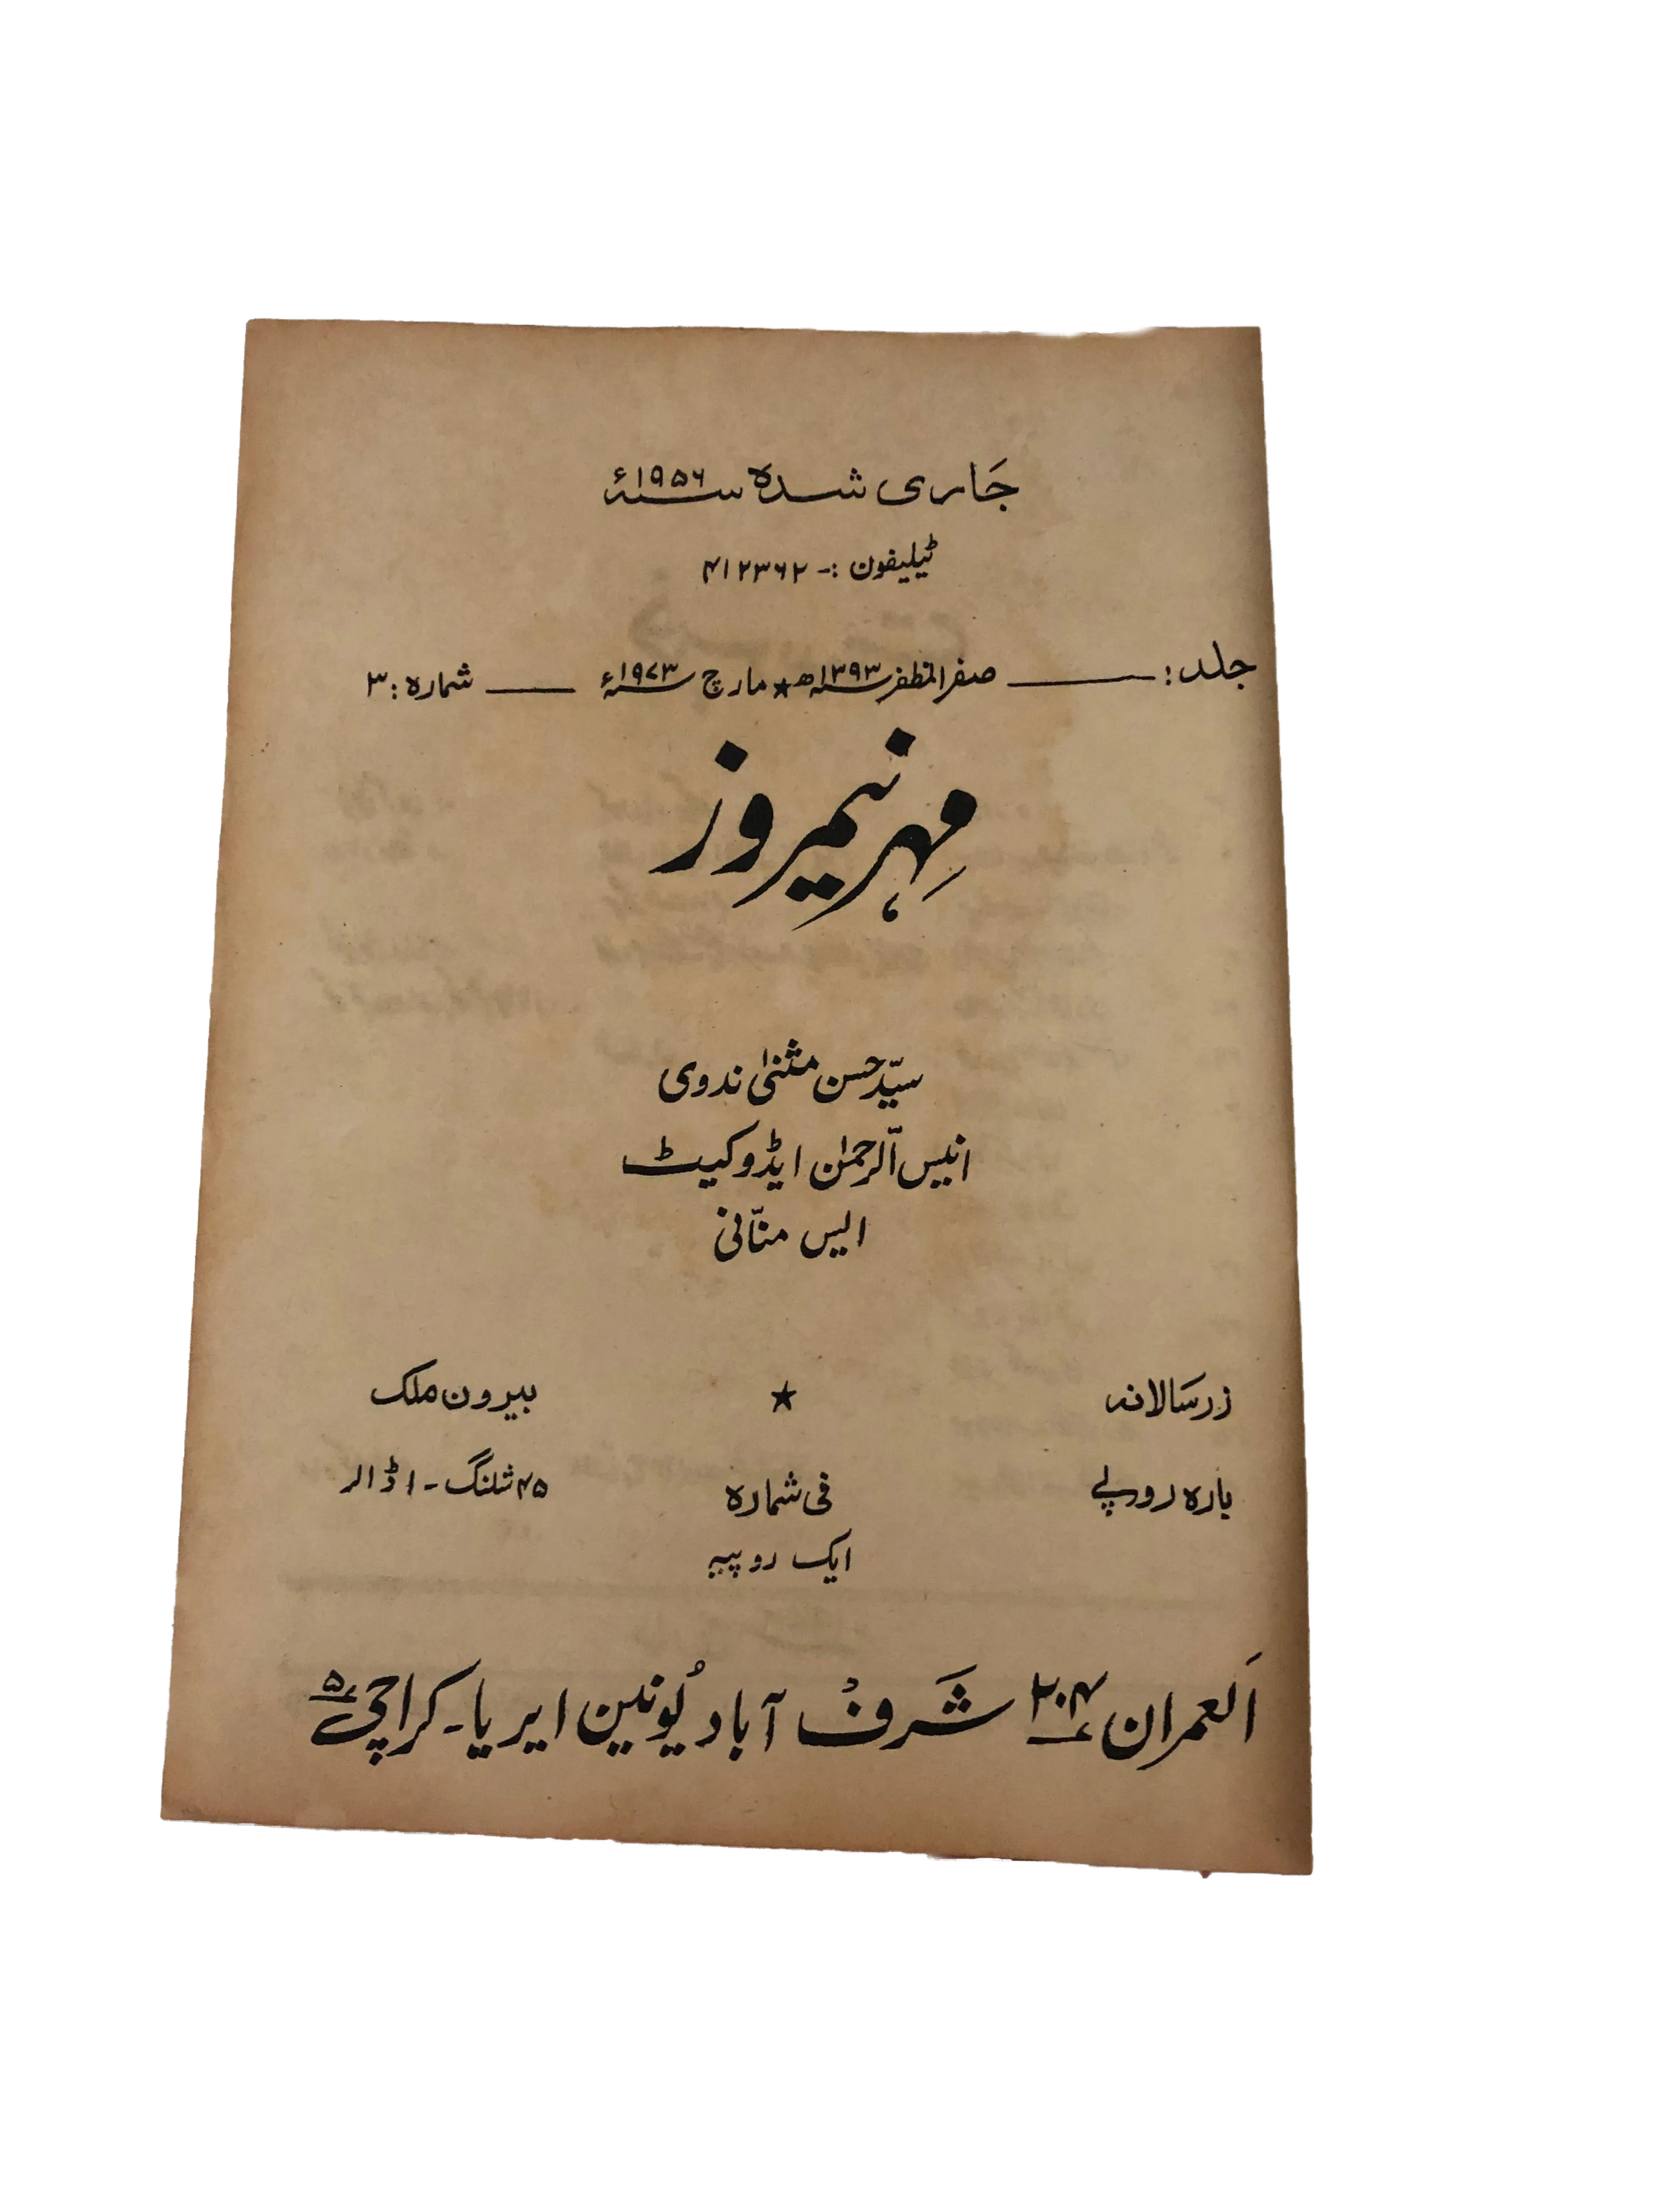 جاری شدہ سنہ ۱۹۵۶ء
ٹیلیفون :- ۴۱۲۳۶۲
جلد: ——— صفر المظفر سنہ ۱۳۹۳ھ ★ مارچ سنہ ۱۹۷۳ء ——— شمارہ: ۳
مہر نیمروز
سیّد حسن مثنیٰ ندوی
انیس الرّحمٰن ایڈوکیٹ
ایس منّانی
زر سالانہ ★ بیرون ملک
بارہ روپے فی شمارہ ۴۵ شلنگ - ۱ ڈالر
ایک روپیہ
العمران ۲۰۴ شرف آباد یُونین ایریا - کراچی ۵